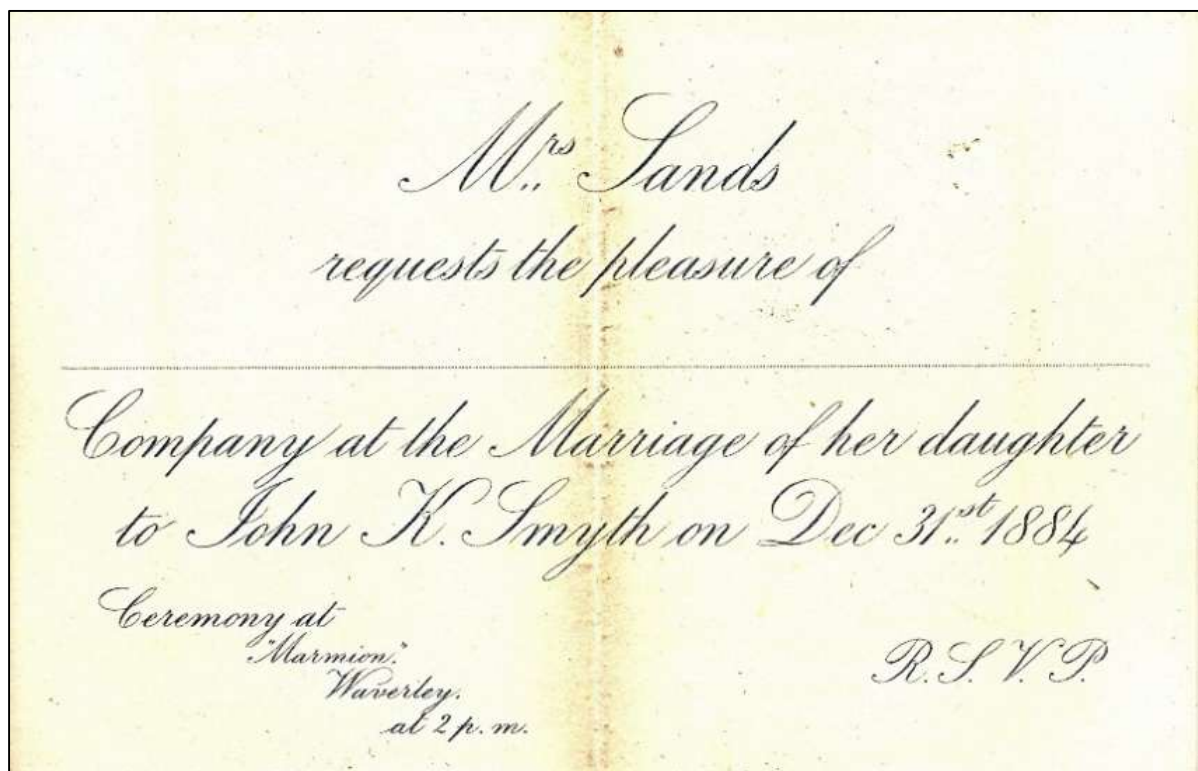 Mrs Sands
requests the pleasure of
Company at the Marriage of her daughter
to John K. Smyth on Dec 31st 1884
Ceremony at
"Marmion."
Waverley.
at 2 p.m.
R.S.V.P.